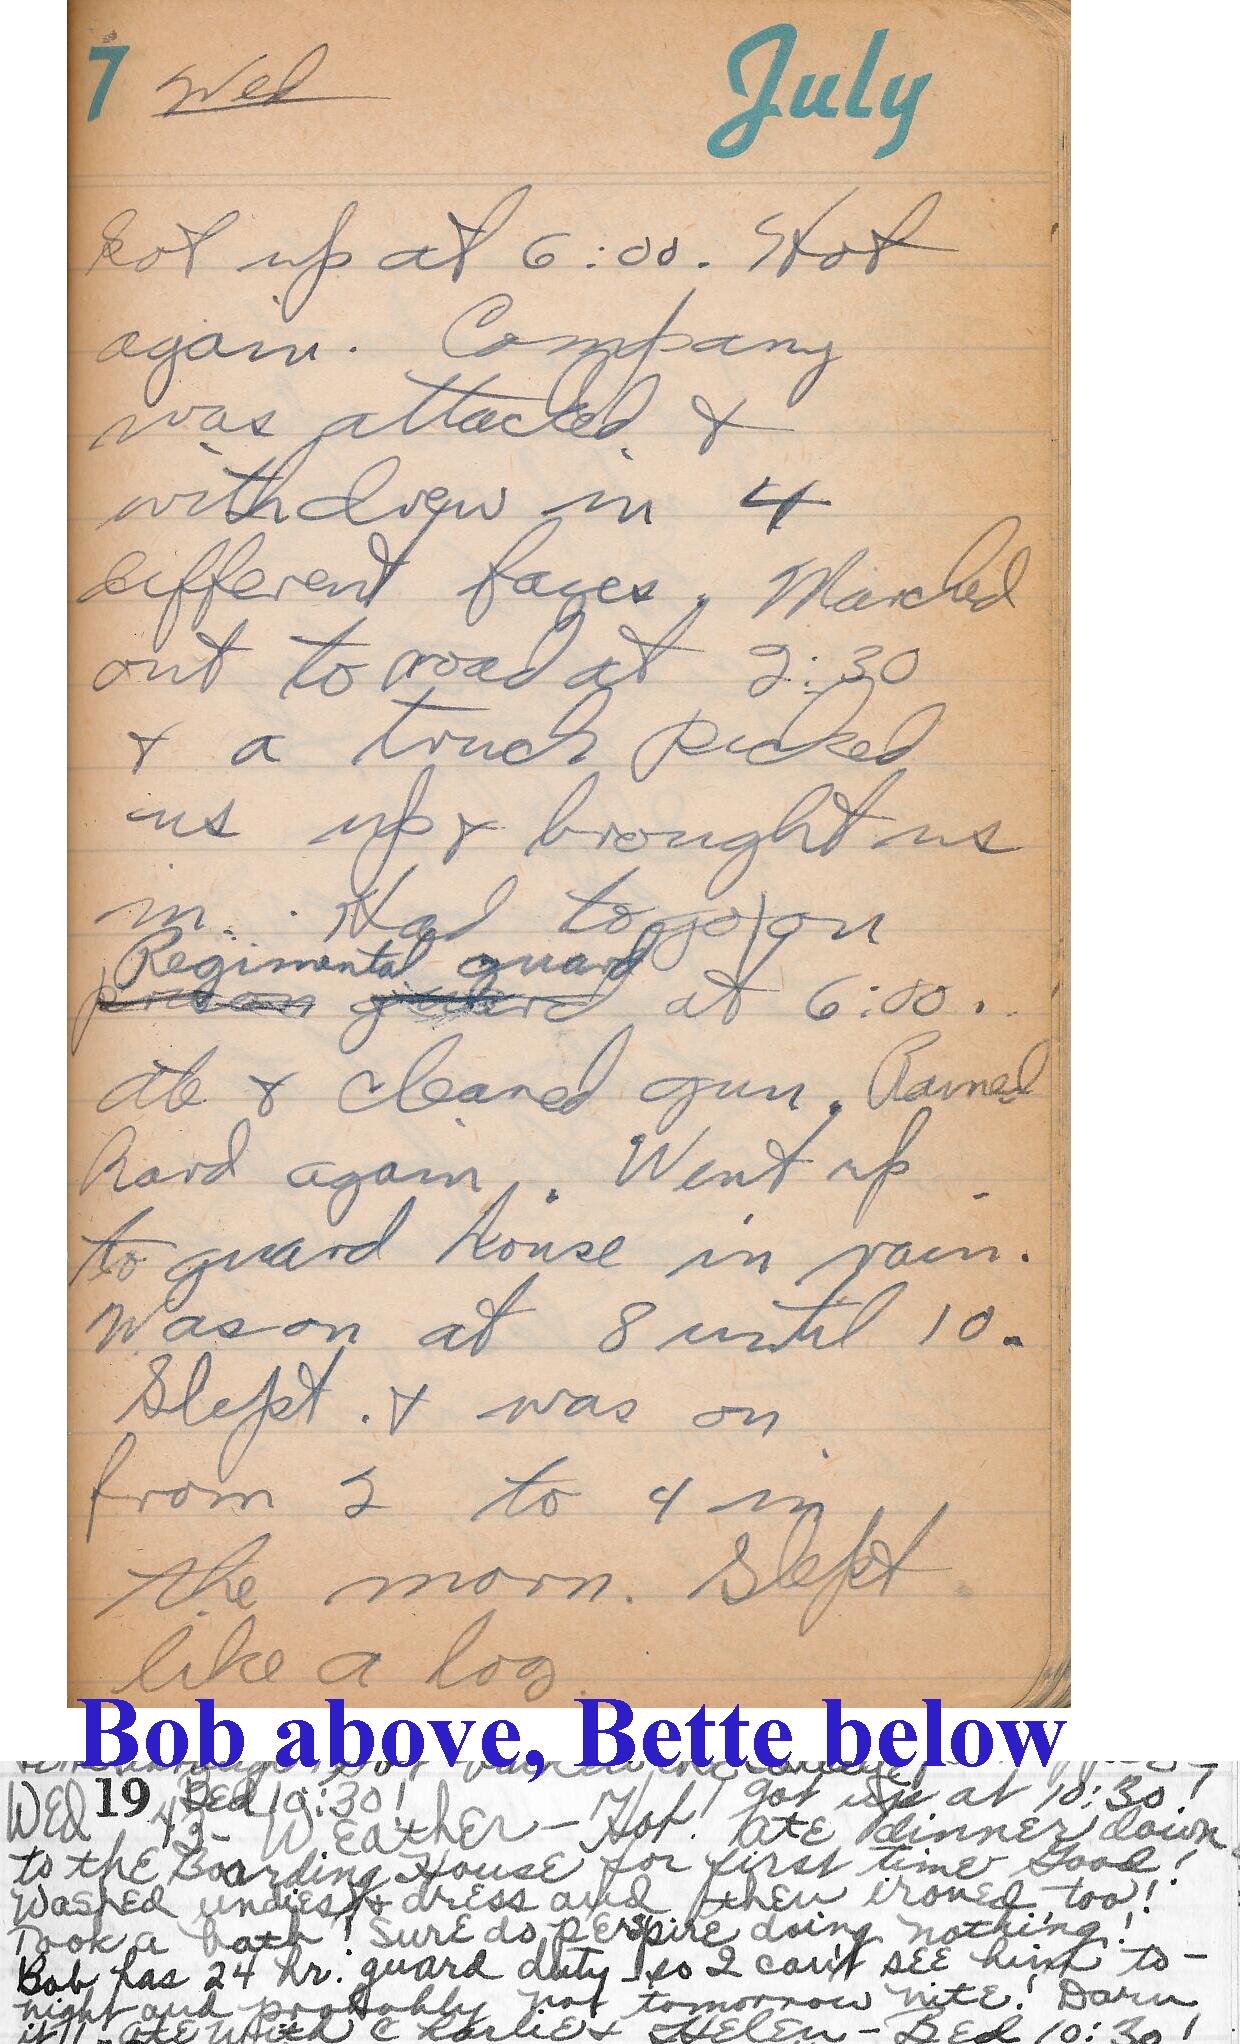 7 Wed July
Got up at 6:00. Hot
again. Company
was attacked &
withdrew in 4
different faces. Marched
out to road at 2:30
& a truck picked
us up & brought us
in. Had to go on
Regimental guard
prison guard at 6:00.
ate & cleaned gun. Rained
hard again. Went up
to guard house in rain.
Was on at 8 until 10.
Slept. & was on
from 2 to 4 in
the morn. Slept
like a log.
Bob above, Bette below
Bed 10:30!
WED 19 43 - WEATHER - Hot! Got up at 10:30!
Ate dinner down
to the Boarding House for first time Good!
Washed undies & dress and then ironed too!
Took a bath! Sure do perspire doing nothing!
Bob has 24 hr. guard duty - so I can't see him to-
night and probably not tomorrow nite! Darn
it!! - Ate with Charlie & Helen - Bed 10:30!